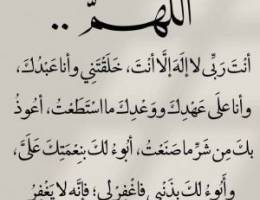 اللهمّ ..
أنتَ رَبِّي لا إلهَ إلَّا أنتَ، خَلَقْتَنِي وأنا عَبْدُكَ،
وأنا علَى عَهْدِكَ ووَعْدِكَ ما اسْتَطَعْتُ، أعُوذُ
بكَ مِن شَرِّ ما صَنَعْتُ، أبُوءُ لكَ بنِعْمَتِكَ عَلَيَّ،
وأَبُوءُ لكَ بذَنْبِي فاغْفِرْ لِي؛ فإنَّه لا يَغْفِرُ